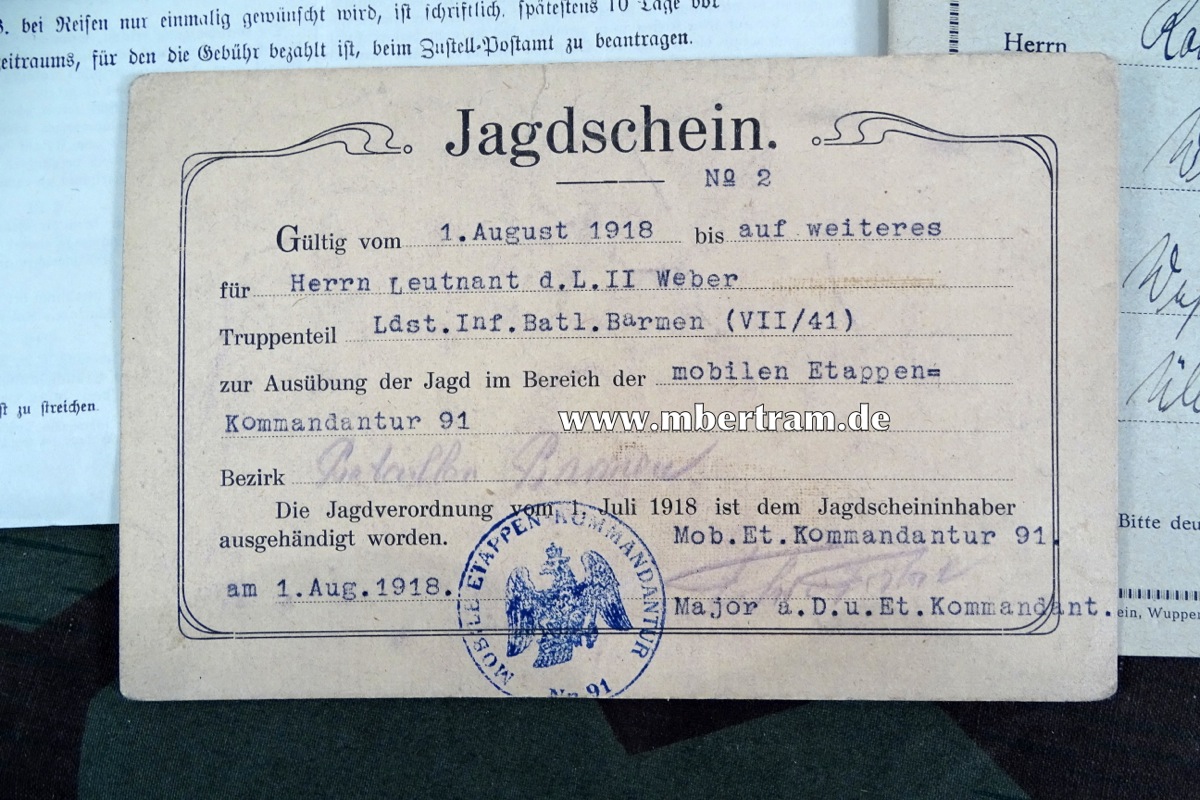 bei Reisen nur einmalig gewünscht wird, ist schriftlich, spätestens 10 Tage vor
eitraums, für den die Gebühr bezahlt ist, beim Zustell-Postamt zu beantragen.
st zu streichen.
Herrn
Jagdschein.
№ 2
Gültig vom 1.August 1918 bis auf weiteres
für Herrn Leutnant d.L.II Weber
Truppenteil Ldst.Inf.Batl.Barmen (VII/41)
zur Ausübung der Jagd im Bereich der mobilen Etappen=
Kommandantur 91
www.mbertram.de
Bezirk
Die Jagdverordnung vom 1. Juli 1918 ist dem Jagdscheininhaber
ausgehändigt worden.
Mob.Et.Kommandantur 91.
am 1.Aug.1918.
Major a.D.u.Et.Kommandant.
MOBILE ETAPPEN-KOMMANDANTUR
No 91
Bitte deu
ein, Wupper